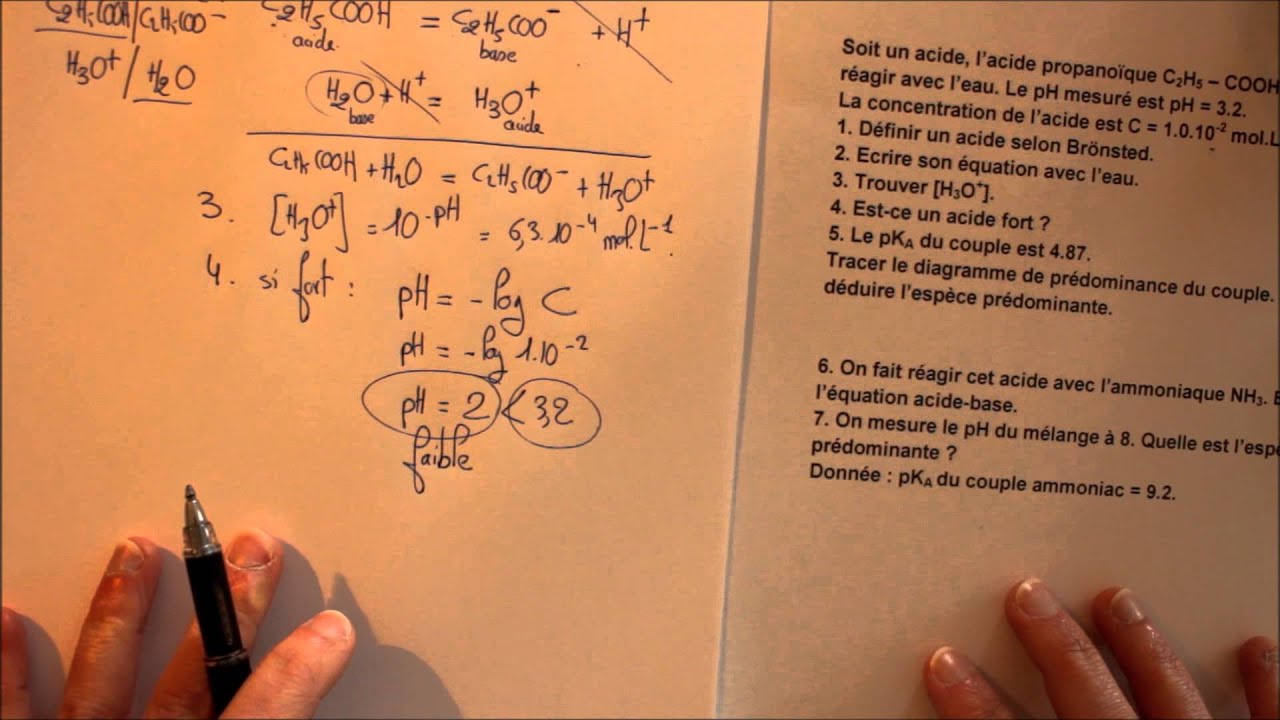 C2H5COOH/C2H5COO⁻
H3O⁺/H2O
C2H5COOH = C2H5COO⁻ + H⁺
acide base
H2O + H⁺ = H3O⁺
base acide
C2H5COOH + H2O = C2H5COO⁻ + H3O⁺
3. [H3O⁺] = 10⁻ᵖᴴ = 6,3.10⁻⁴ mol.L⁻¹.
4. si fort : pH = -log C
pH = -log 1.10⁻²
pH = 2 < 3,2
faible
Soit un acide, l'acide propanoïque C₂H₅ – COOH
réagir avec l'eau. Le pH mesuré est pH = 3.2.
La concentration de l'acide est C = 1.0.10⁻² mol.L
1. Définir un acide selon Brönsted.
2. Ecrire son équation avec l'eau.
3. Trouver [H₃O⁺].
4. Est-ce un acide fort ?
5. Le pKA du couple est 4.87.
Tracer le diagramme de prédominance du couple.
déduire l'espèce prédominante.
6. On fait réagir cet acide avec l'ammoniaque NH₃.
l'équation acide-base.
7. On mesure le pH du mélange à 8. Quelle est l'espè
prédominante ?
Donnée : pKA du couple ammoniac = 9.2.